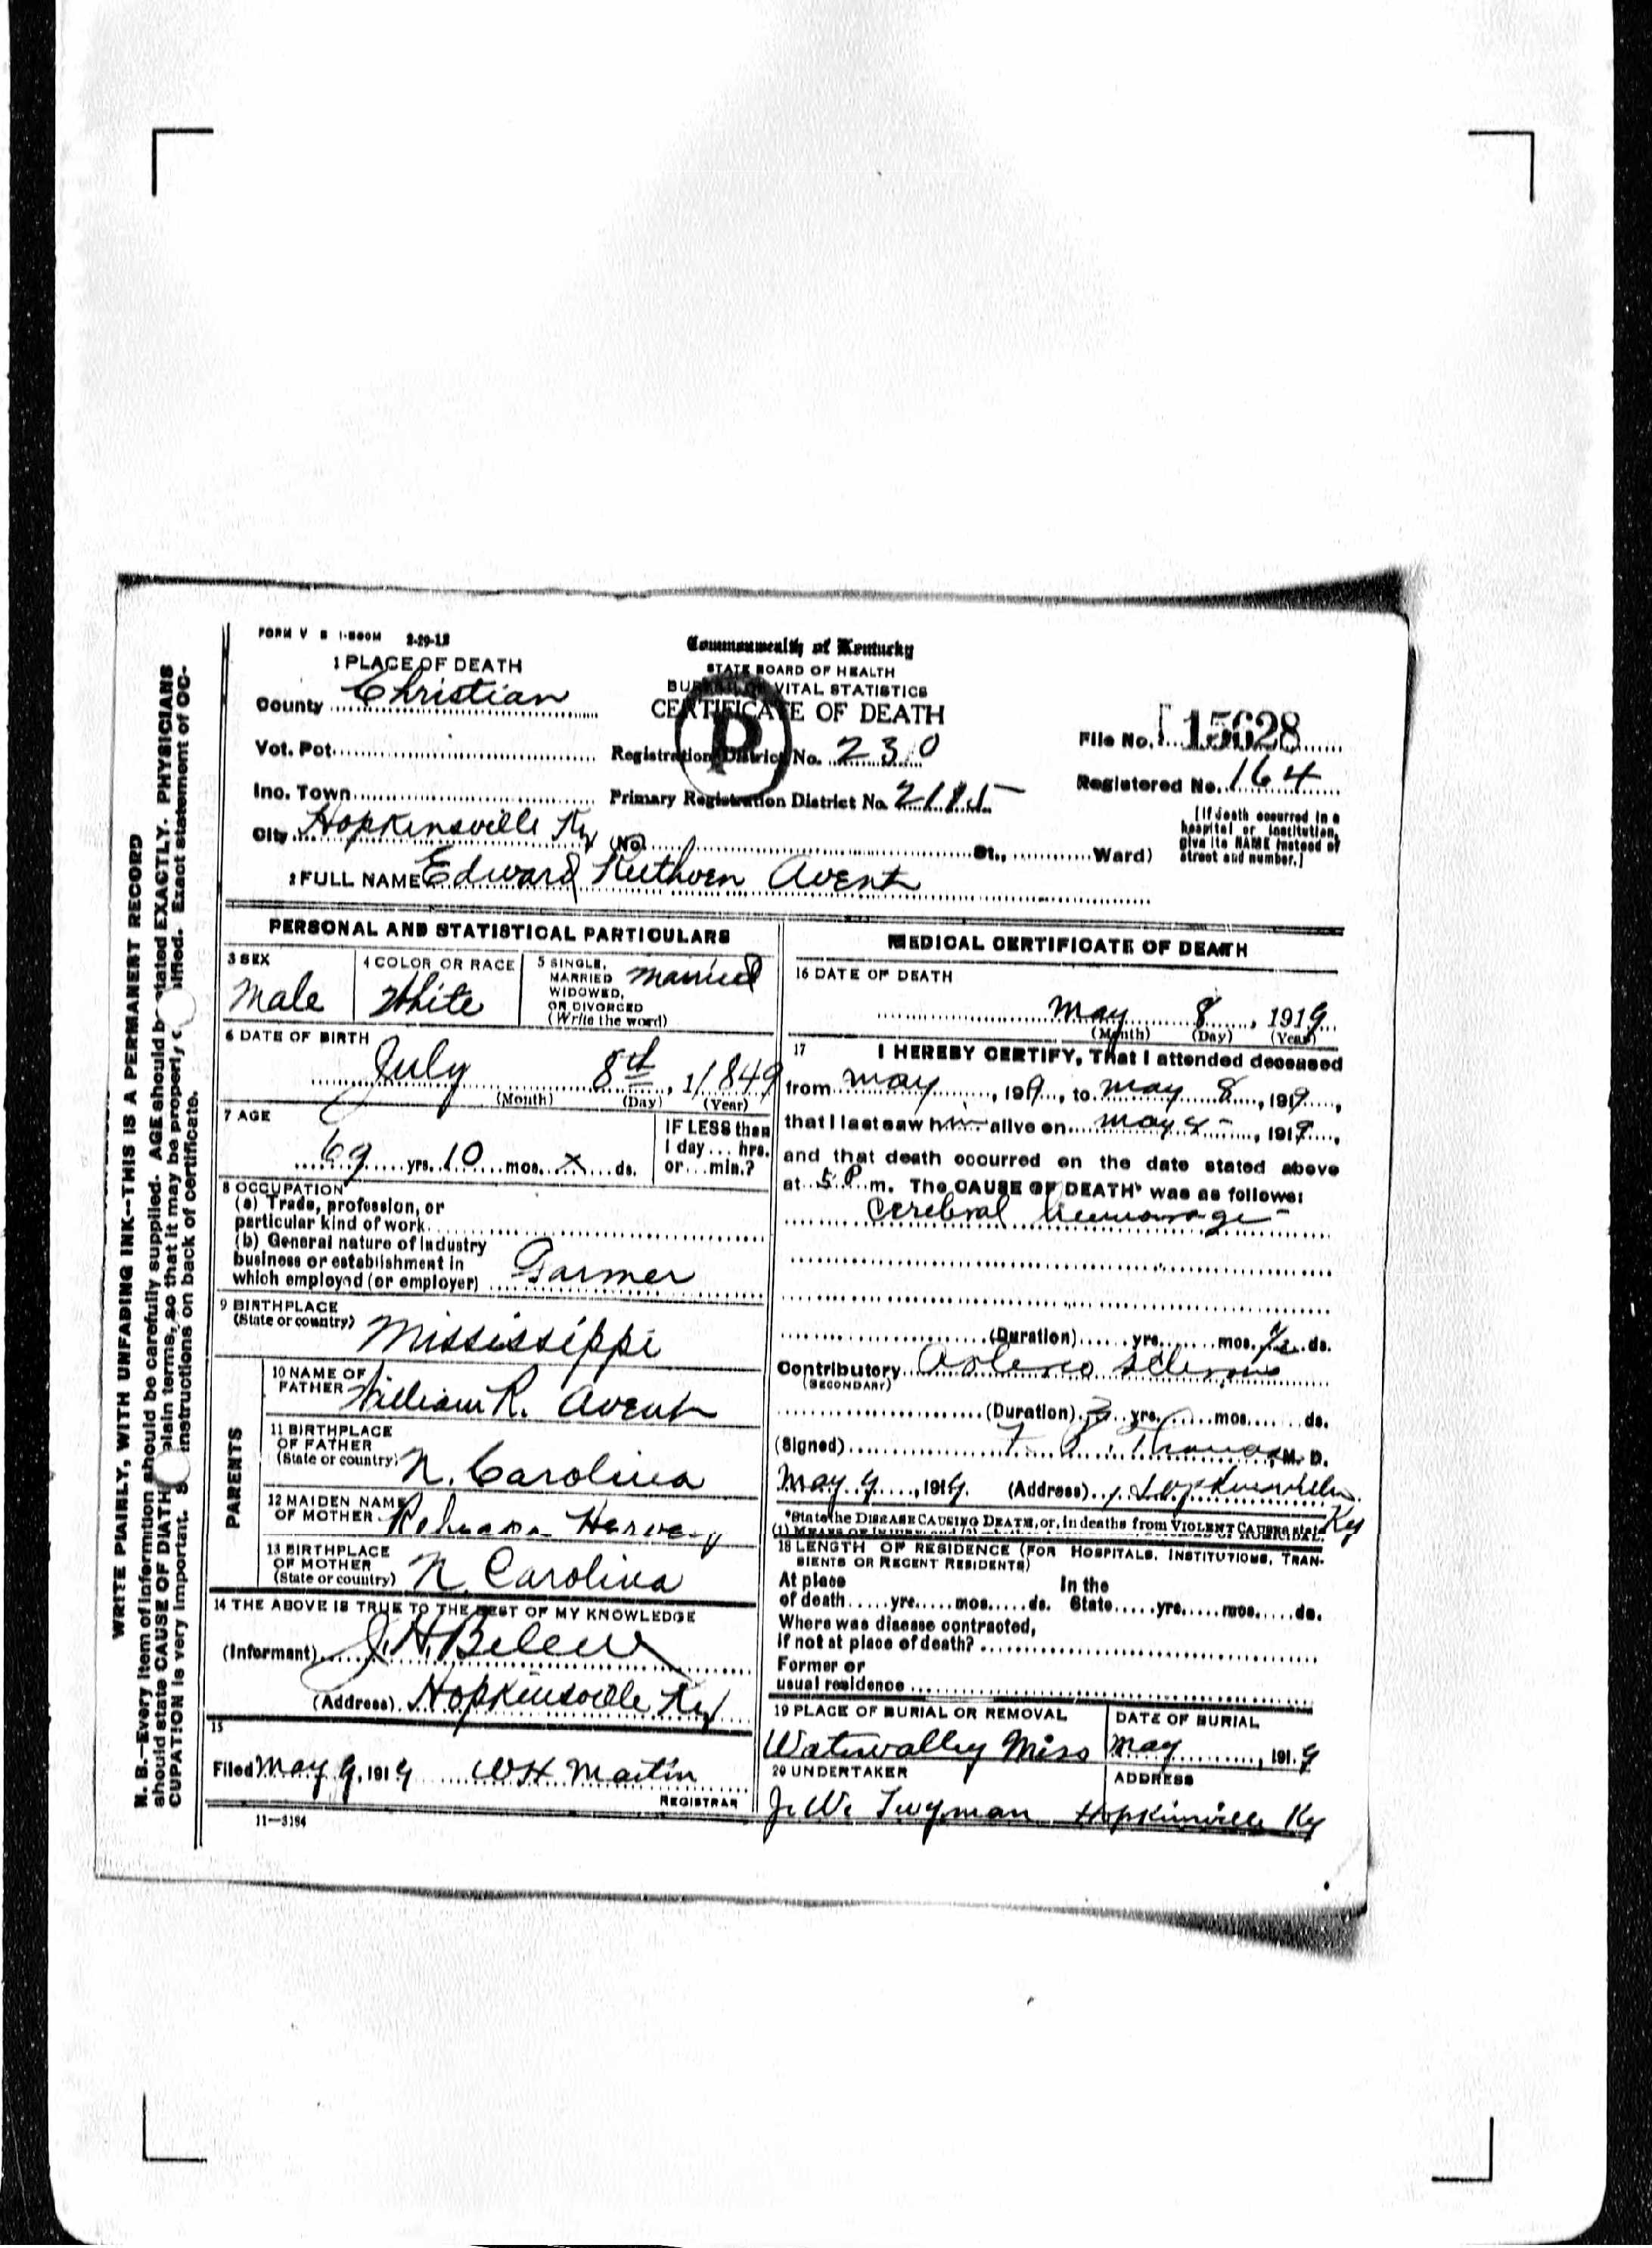 FORM V S 1-500M 2-29-12
Commonwealth of Kentucky
STATE BOARD OF HEALTH
BUREAU OF VITAL STATISTICS
CERTIFICATE OF DEATH
P
1 PLACE OF DEATH
County Christian
Vot. Pct.
Registration District No. 230
File No. 15628
Inc. Town
Primary Registration District No. 2185
Registered No. 164
City Hopkinsville Ky (No. St., Ward)
[If death occurred in a hospital or institution, give its NAME instead of street and number.]
2 FULL NAME Edward Ruthven Avent
PERSONAL AND STATISTICAL PARTICULARS
3 SEX
Male
4 COLOR OR RACE
White
5 SINGLE, MARRIED WIDOWED, OR DIVORCED (Write the word)
Married
6 DATE OF BIRTH
July 8th, 1849
(Month) (Day) (Year)
7 AGE
69 yrs. 10 mos. x ds.
IF LESS than 1 day... hrs. or... min.?
8 OCCUPATION
(a) Trade, profession, or
particular kind of work
(b) General nature of industry
business or establishment in
which employed (or employer) Farmer
9 BIRTHPLACE
(State or country) Mississippi
PARENTS
10 NAME OF FATHER William R. Avent
11 BIRTHPLACE OF FATHER (State or country) N. Carolina
12 MAIDEN NAME OF MOTHER Hervey
13 BIRTHPLACE OF MOTHER (State or country) N. Carolina
14 THE ABOVE IS TRUE TO THE BEST OF MY KNOWLEDGE
(Informant) J. H.
(Address) Hopkinsville Ky
15
Filed May 9, 1919 W H Martin
REGISTRAR
11-3184
MEDICAL CERTIFICATE OF DEATH
16 DATE OF DEATH
May 8, 1919
(Month) (Day) (Year)
17 I HEREBY CERTIFY, That I attended deceased
from May, 1919, to May 8, 1919,
that I last saw him alive on May 8, 1919,
and that death occurred on the date stated above
at 5 P m. The CAUSE OF DEATH* was as follows:
Cerebral hemorrage
(Duration) yrs. mos. 1/2 ds.
Contributory Arterio sclerosis
(SECONDARY)
(Duration) yrs. mos. ds.
(Signed) M. D.
May 9, 1919. (Address) Hopkinsville Ky
*State the DISEASE CAUSING DEATH, or, in deaths from VIOLENT CAUSES state
18 LENGTH OF RESIDENCE (FOR HOSPITALS, INSTITUTIONS, TRAN-
SIENTS OR RECENT RESIDENTS)
At place In the
of death yrs. mos. ds. State yrs. mos. ds.
Where was disease contracted,
if not at place of death?
Former or
usual residence
19 PLACE OF BURIAL OR REMOVAL
Watervalley Miss
DATE OF BURIAL
May, 1919
20 UNDERTAKER
J. W. Twyman
ADDRESS
Hopkinsville Ky
WRITE PLAINLY, WITH UNFADING INK--THIS IS A PERMANENT RECORD
N. B.--Every item of information should be carefully supplied. AGE should be stated EXACTLY. PHYSICIANS
should state CAUSE OF DEATH plain terms, so that it may be properly Exact statement of OC-
CUPATION is very important. instructions on back of certificate.